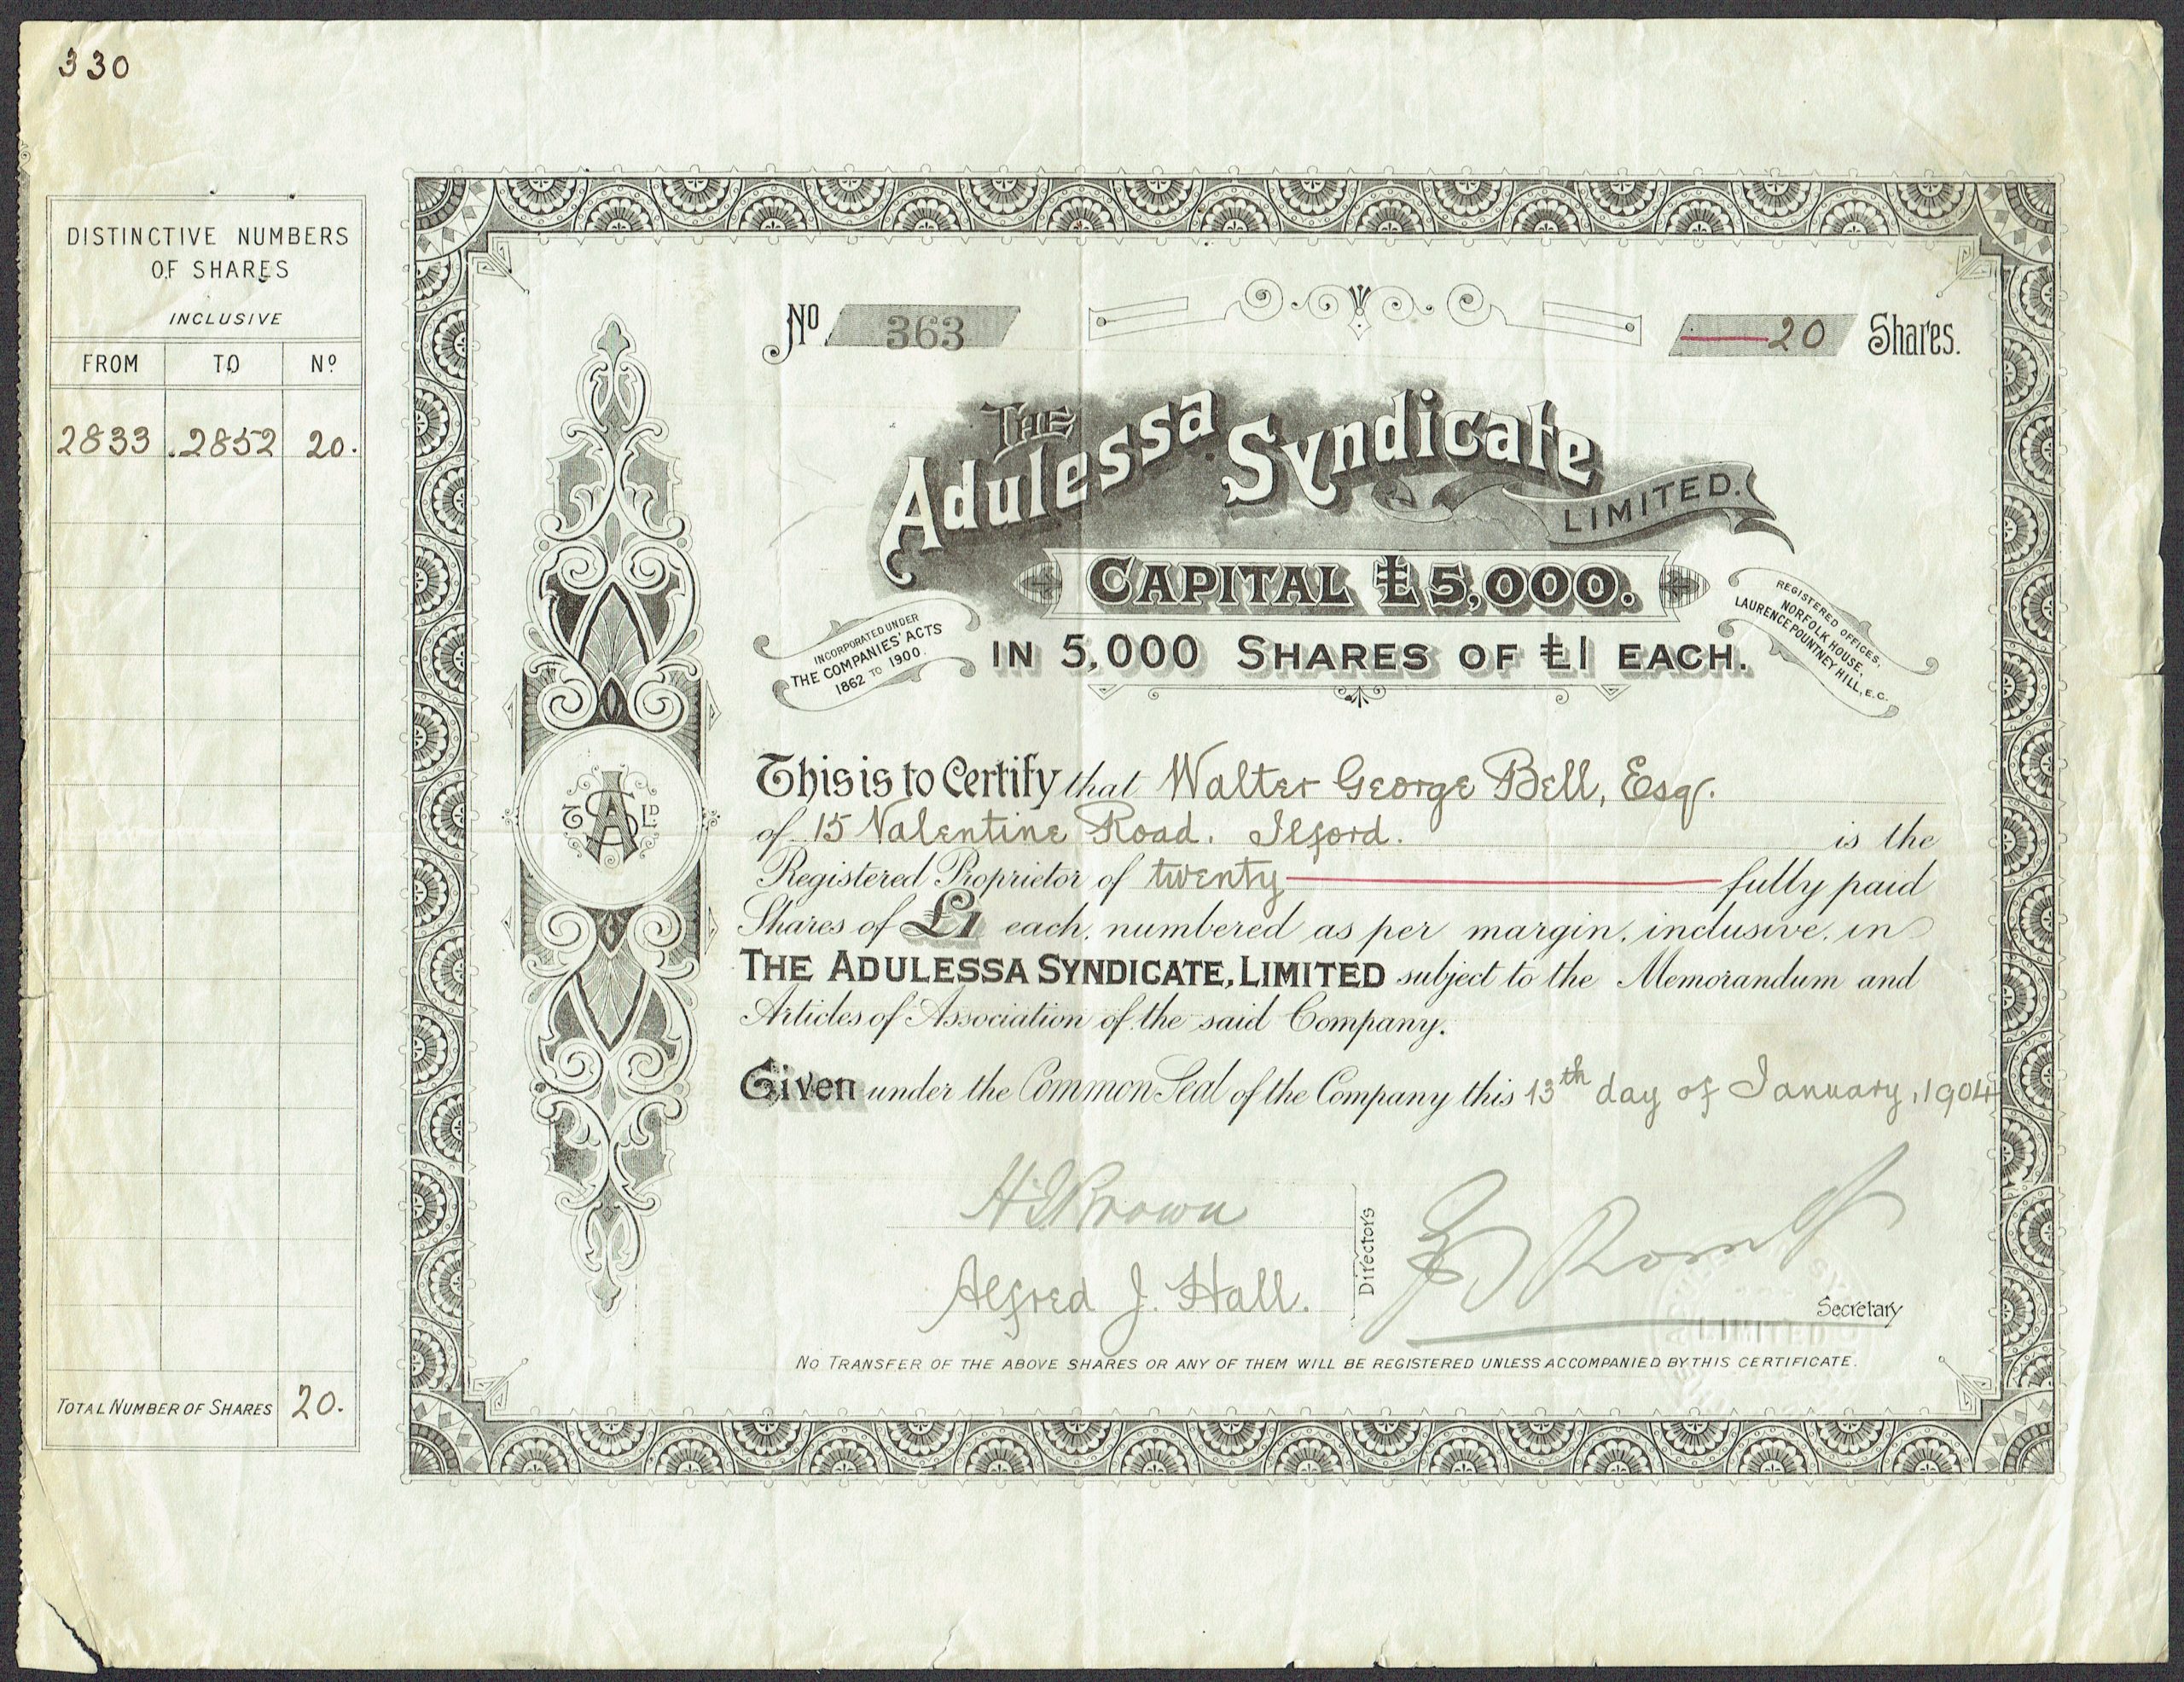 330
DISTINCTIVE NUMBERS
OF SHARES
INCLUSIVE
FROM TO Nº
2833 .2852 20.
TOTAL NUMBER OF SHARES 20.
Nº 363
20 Shares.
THE
Adulessa Syndicate
LIMITED.
CAPITAL £5,000.
IN 5,000 SHARES OF £1 EACH.
INCORPORATED UNDER
THE COMPANIES' ACTS
1862 TO 1900.
REGISTERED OFFICES,
NORFOLK HOUSE,
LAURENCE POUNTNEY HILL, E.C.
T A S LD
This is to Certify that Walter George Bell, Esq.
of 15 Valentine Road. Ilford. is the
Registered Proprietor of twenty fully paid
Shares of £1 each, numbered as per margin, inclusive, in
THE ADULESSA SYNDICATE, LIMITED subject to the Memorandum and
Articles of Association of the said Company.
Given under the Common Seal of the Company this 13th day of January, 1904
Brown
Alfred J. Hall.
Directors
Secretary
LIMITED
NO TRANSFER OF THE ABOVE SHARES OR ANY OF THEM WILL BE REGISTERED UNLESS ACCOMPANIED BY THIS CERTIFICATE.